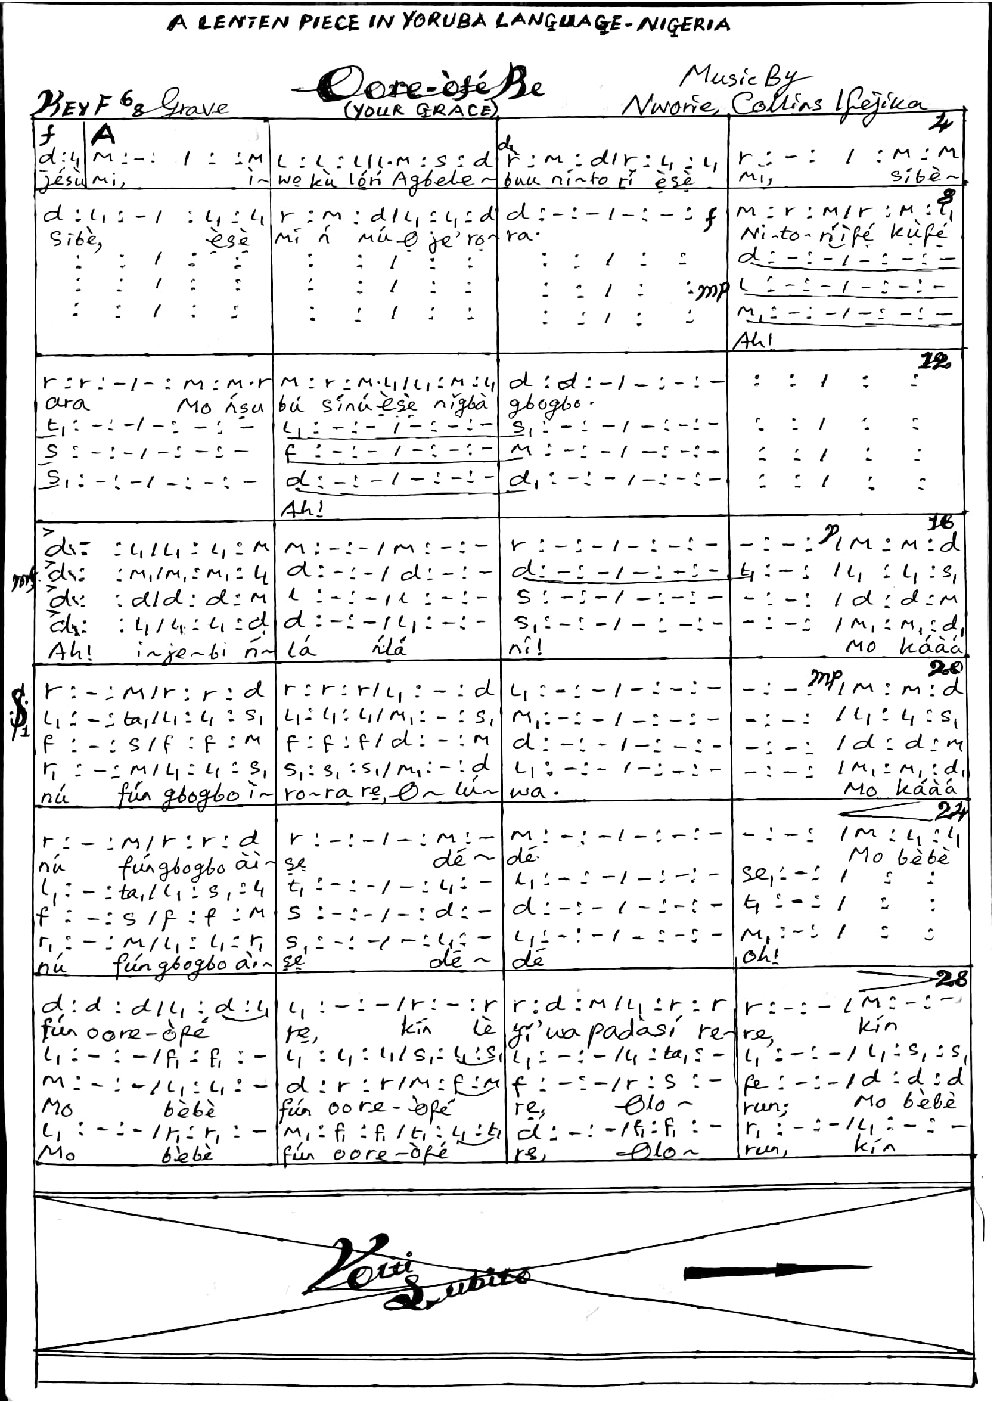 A LENTEN PIECE IN YORUBA LANGUAGE - NIGERIA
Oore-òfé Re
Music By
KEY F 6/8 Grave
(YOUR GRACE)
Nworie, Collins Ifejika
f A 4
d:l₁ m:-:/::m l:l:l/l.m:s:d r:m:d/r:l₁:l₁ r:-:/:m:m
Jésù mi, ì~ wo kù lórí Agbele~ buu ní~to rí èsè mi, síbè~
8
d:l₁:-/:l₁:l₁ r:m:d/l₁:l₁:d d:-:-/-:-:- f m:r:m/r:m:l₁
Síbè, èsè mi ń mú O je'ro~ ra. Ni-to-ńífé kùfé
: : / : : : : / : : : : / : : d:-:-/-:-:-
: : / : : : : / : : : : / : : mp l:-:-/-:-:-
: : / : : : : / : : : : / : : m₁:-:-/-:-:-
Ah!
12
r:r:-/-:m:m.r m:r:m.l₁/l₁:m:l₁ d:d:-/-:-:- : : / : :
ara Mo ńsu bú sínú èsè nígbà gbogbo.
t₁:-:-/-:-:- l₁:-:-/-:-:- s₁:-:-/-:-:- : : / : :
s:-:-/-:-:- f:-:-/-:-:- m:-:-/-:-:- : : / : :
s₁:-:-/-:-:- d:-:-/-:-:- d₁:-:-/-:-:- : : / : :
Ah!
16
d: :l₁/l₁:l₁:m m:-:-/m:-:- r:-:-/-:-:- -:-:- p/m:m:d
d: :m₁/m₁:m₁:l₁ d:-:-/d:-:- d:-:-/-:-:- t₁:-:-/l₁:l₁:s₁
d: :d/d:d:m l:-:-/l:-:- s:-:-/-:-:- -:-:-/d:d:m
d: :l₁/l₁:l₁:d d:-:-/l₁:-:- s₁:-:-/-:-:- -:-:-/m₁:m₁:d₁
Ah! ì~je~bi ń~ lá ńlá ni! Mo káàá
20
r:-:m/r:r:d r:r:r/l₁:-:d l₁:-:-/-:-:- -:-:- mp/m:m:d
l₁:-:ta₁/l₁:l₁:s₁ l₁:l₁:l₁/m₁:-:s₁ m₁:-:-/-:-:- -:-:-/l₁:l₁:s₁
f:-:s/f:f:m f:f:f/d:-:m d:-:-/-:-:- -:-:-/d:d:m
r₁:-:m/l₁:l₁:s₁ s₁:s₁:s₁/m₁:-:d l₁:-:-/-:-:- -:-:-/m₁:m₁:d₁
nú fún gbogbo ì~ ro-ra re, O~ lú~ wa. Mo káàá
24
r:-:m/r:r:d r:-:-/-:m:- m:-:-/-:-:- -:-:-/m:l₁:l₁
nú fúngbogbo àì~ se dé~ dé. Mo bèbè
l₁:-:ta₁/l₁:s₁:l₁ t₁:-:-/-:l₁:- l₁:-:-/-:-:- se₁:-:-/ : :
f:-:s/f:f:m s:-:-/-:d:- d:-:-/-:-:- t₁:-:-/ : :
r₁:-:m/l₁:l₁:r₁ s₁:-:-/-:l₁:- l₁:-:-/-:-:- m₁:-:-/ : :
nú fúngbogbo àì~ se dé~ dé Oh!
28
d:d:d/l₁:d:l₁ l₁:-:-/r:-:r r:d:m/l₁:r:r r:-:-/m:-:-
fún oore-òfé re, kín lè yí'wa padàsí re~ re, kín
l₁:-:-/f₁:f₁:- l₁:l₁:l₁/s₁:l₁:s₁ l₁:-:-/l₁:ta₁:- l₁:-:-/l₁:s₁:s₁
m:-:-/l₁:l₁:- d:r:r/m:f:m f:-:-/r:s:- fe:-:-/d:d:d
Mo bèbè fún oore-òfé re, Olo~ run; Mo bèbè
l₁:-:-/r₁:r₁:- m₁:f₁:f₁/t₁:l₁:t₁ d:-:-/f₁:f₁:- r₁:-:-/l₁:-:-
Mo bèbè fún oore-òfé re, Olo~ run, kín
Volti
Subito